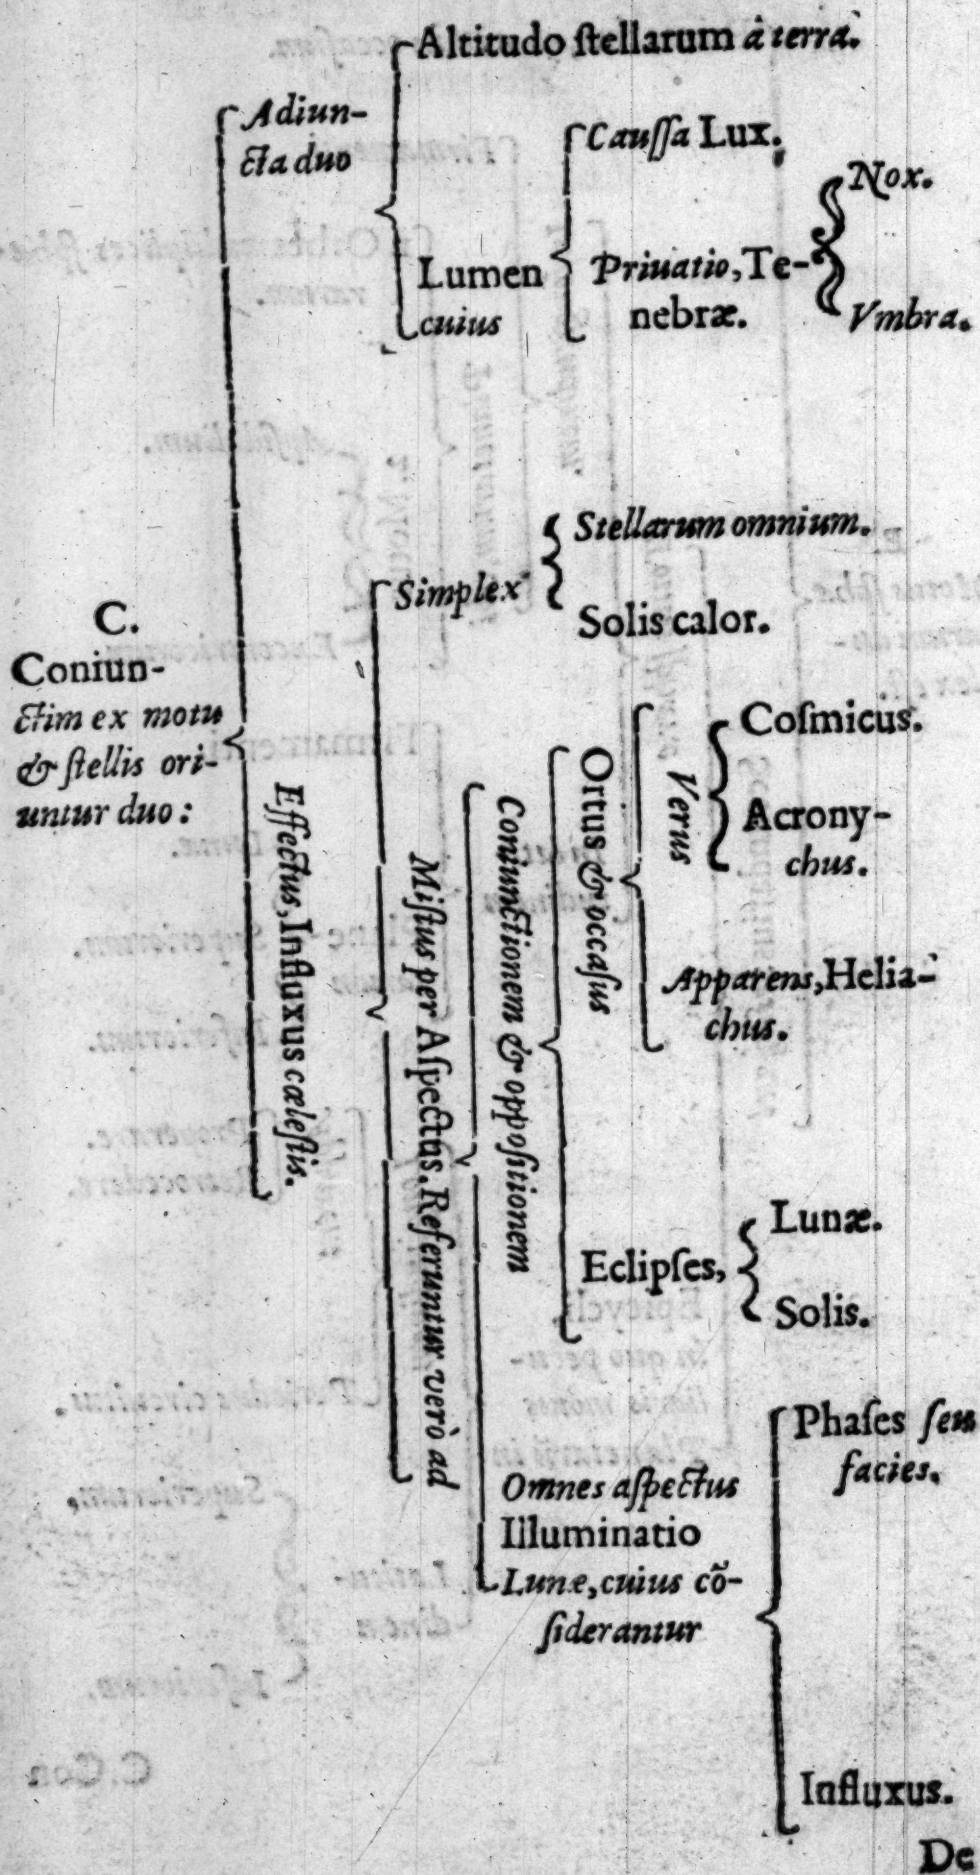 C.
Coniun-
ctim ex motu
& ſtellis ori-
untur duo:
Adiun-
cta duo
Altitudo ſtellarum à terra.
Lumen
cuius
Cauſſa Lux.
Priuatio, Te-
nebræ.
Nox.
Vmbra.
Effectus, Influxus cæleſtis.
Simplex
Stellarum omnium.
Solis calor.
Miſtus per Aſpectus. Referuntur verò ad
Coniunctionem & oppoſitionem
Ortus & occaſus
Verus
Coſmicus.
Acrony-
chus.
Apparens, Helia-
chus.
Eclipſes,
Lunæ.
Solis.
Omnes aſpectus
Illuminatio
Lunæ, cuius cõ-
ſiderantur
Phaſes ſeu
facies.
Influxus.
De